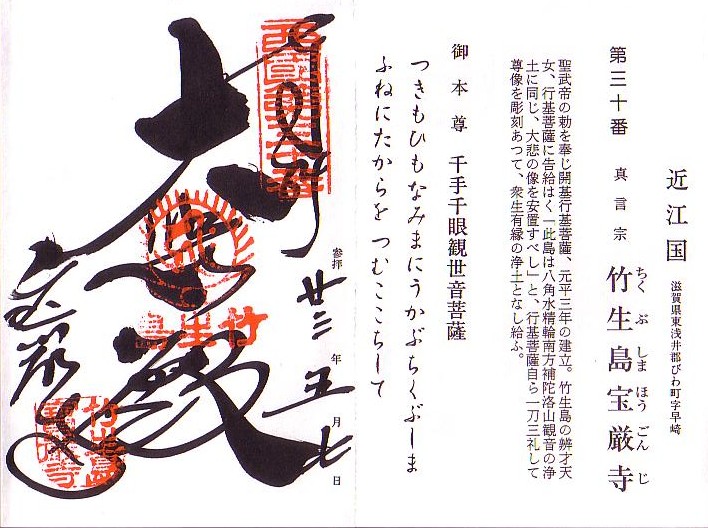 近江国
滋賀県東浅井郡びわ町字早崎
第三十番 真言宗 竹生島宝厳寺
ちくぶしまほうごんじ
聖武帝の勅を奉じ開基行基菩薩、元平三年の建立。竹生島の辨才天
女、行基菩薩に告給はく「此島は八角水精輪南方補陀洛山観音の浄
土に同じ、大悲の像を安置すべし」と、行基菩薩自ら一刀三礼して
尊像を彫刻あつて、衆生有縁の浄土となし給ふ。
御本尊 千手千眼観世音菩薩
つきもひもなみまにうかぶちくぶしま
ふねにたからを つむここちして
参拝 廿三年五月七日
奉拝
西國第三十番
大悲殿
竹生島
宝厳寺
竹生島
宝厳寺